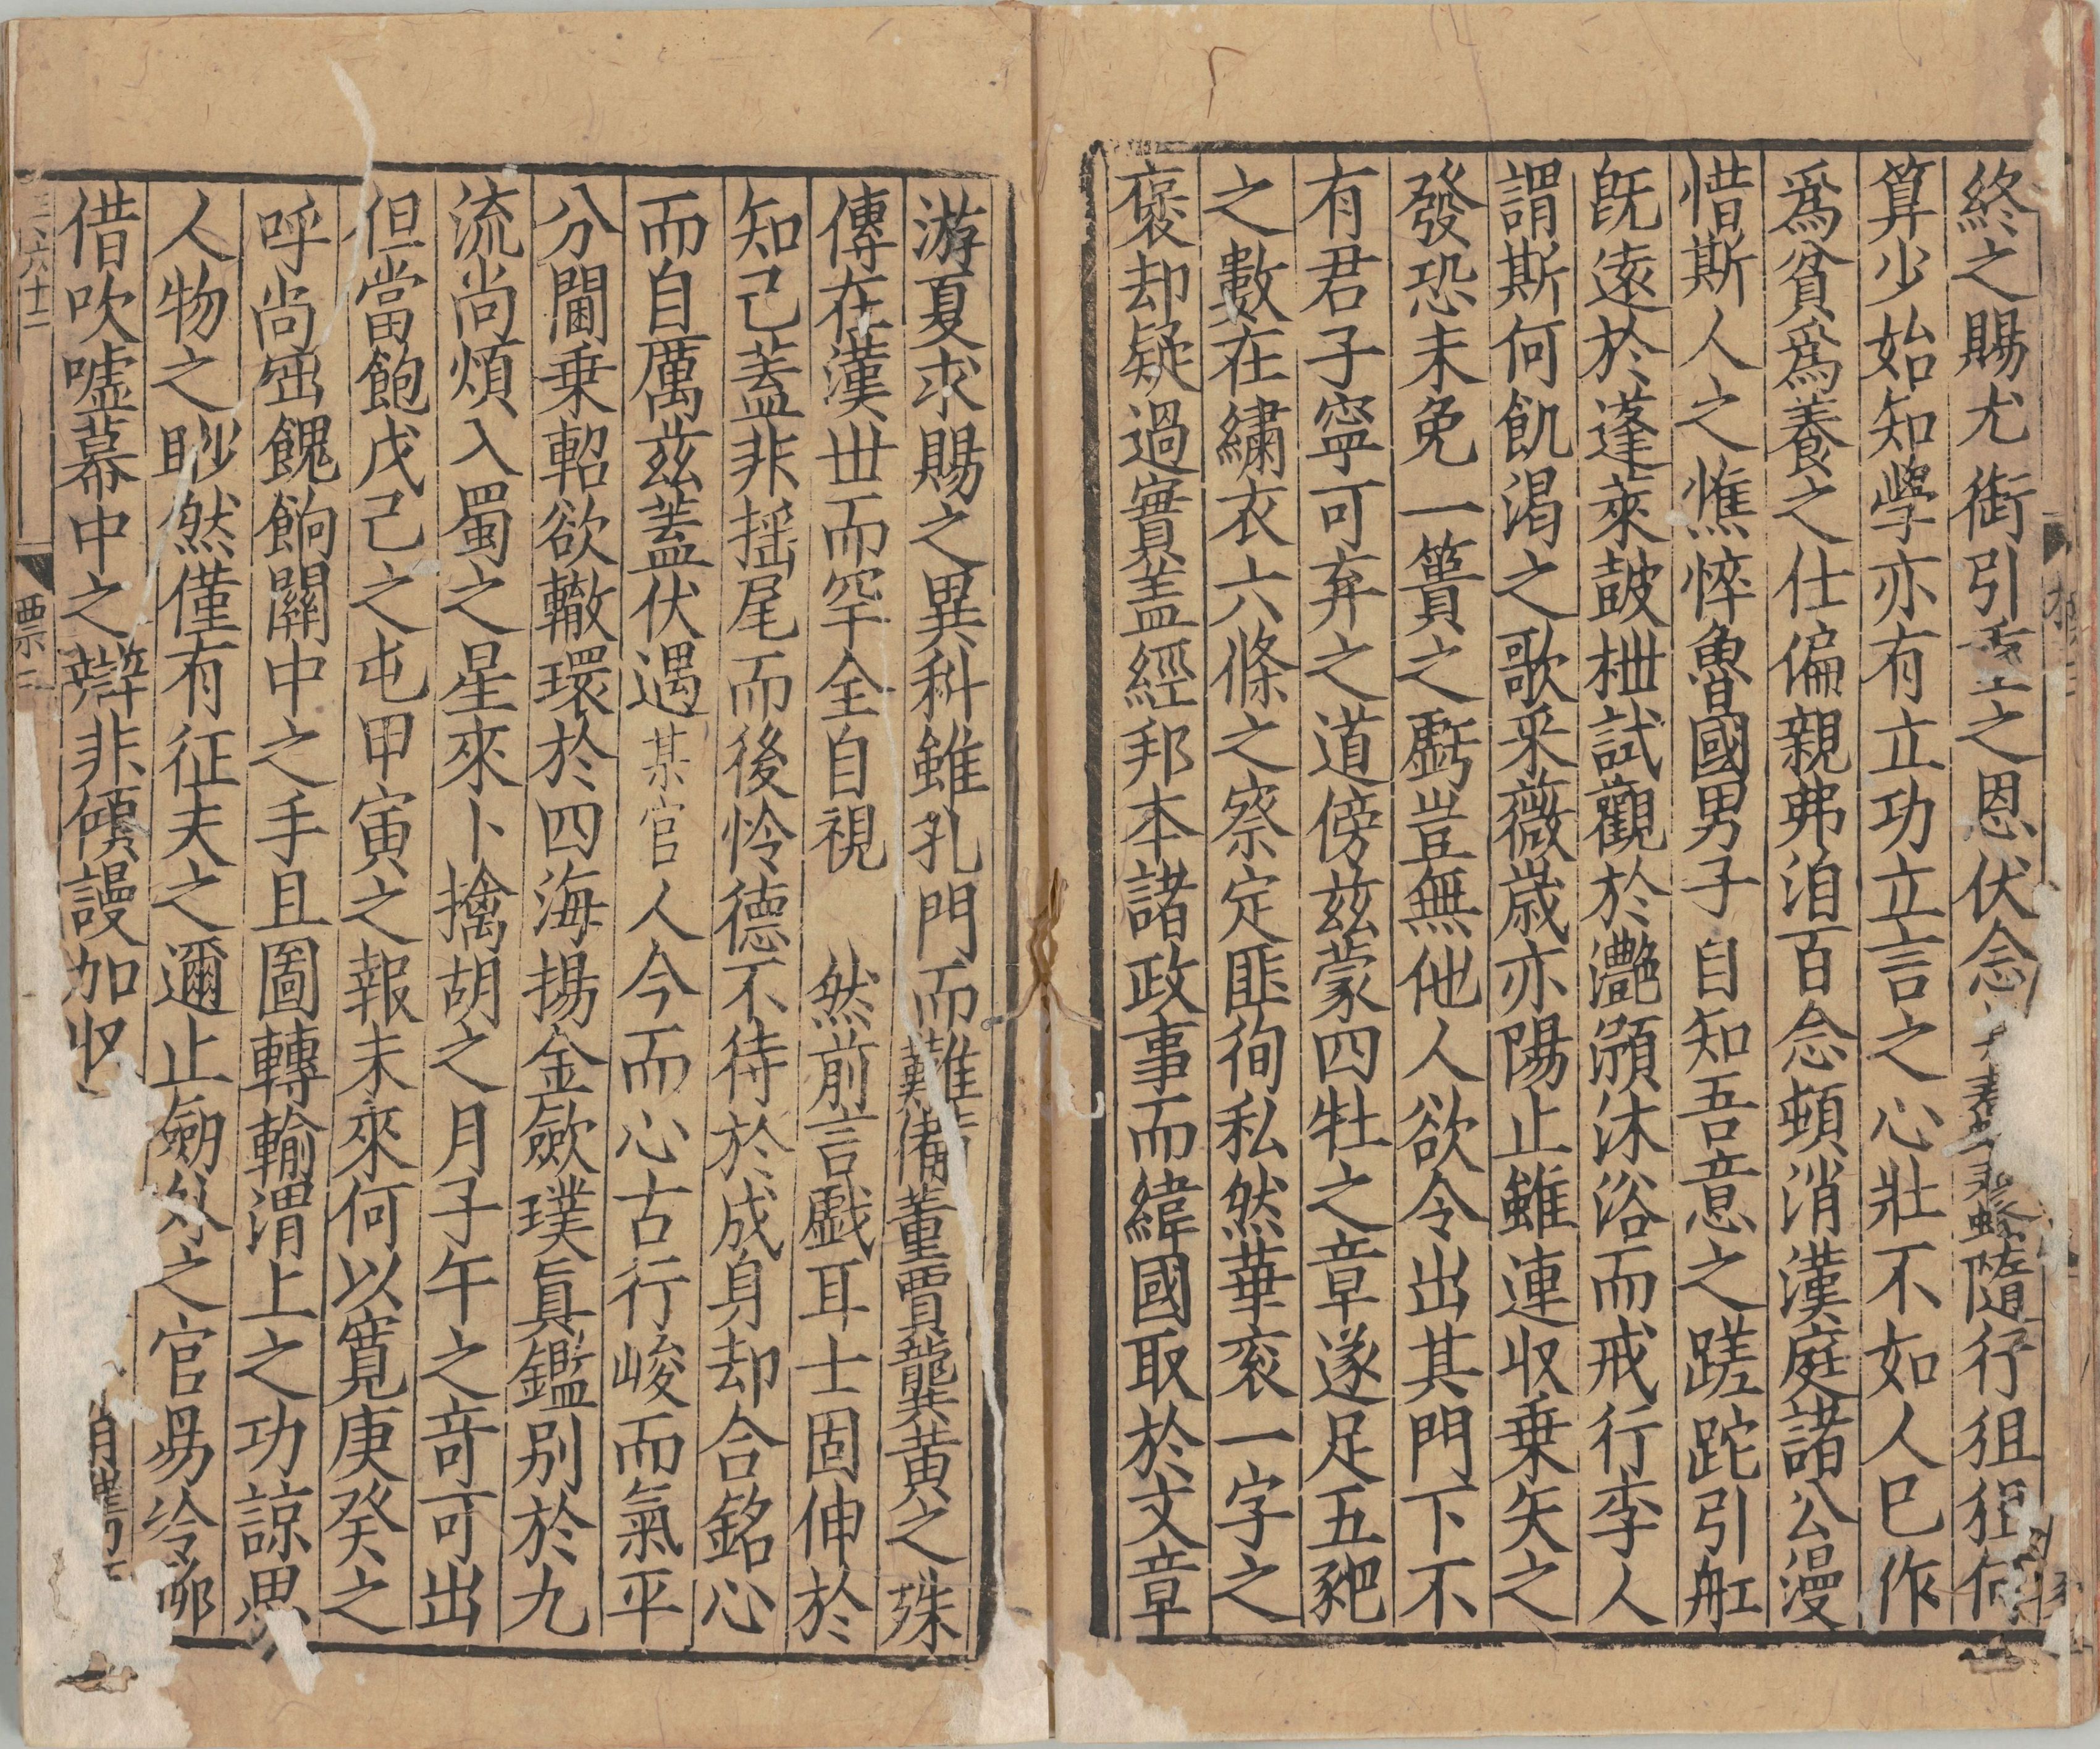 終之賜尤銜引重之恩伏念隨行徂徂
算少始知學亦有立功立言之心壯不如人已作
爲貧爲養之仕偏親弗洎百念頓消漢庭諸公漫
惜斯人之憔悴魯國男子自知吾意之蹉跎引舡
旣遠於蓬萊鼓枻試觀於灧澦沐浴而戒行李人
謂斯何飢渴之歌采薇歲亦陽止雖連収乗矢之
發恐未免一簣之虧豈無他人欲令出其門下不
有君子寧可弃之道傍兹蒙四牡之章遂足五豝
之數在繡衣六條之察定匪徇私然華衮一字之
褒却疑過實盖經邦本諸政事而緯國取於文章
游夏求賜之異科雖孔門而難備董賈龔黃之殊
傳在漢丗而罕全自視　然前言戱耳士固伸於
知己蓋非揺尾而後怜德不待於成身却合銘心
而自厲茲蓋伏遇某官人今而心古行峻而氣平
分閫乗軺欲轍環於四海揚金歛璞眞鑑别於九
流尚煩入蜀之星來卜擒胡之月子午之竒可出
但當飽戊己之屯甲寅之報未來何以寛庚癸之
呼尚寍餽餉關中之手且圖轉輸渭上之功諒思
人物之眇然僅有征夫之邇止劒外之官昜給邠
借吹噓幕中之辯非傾謾加収
三六十二
票二